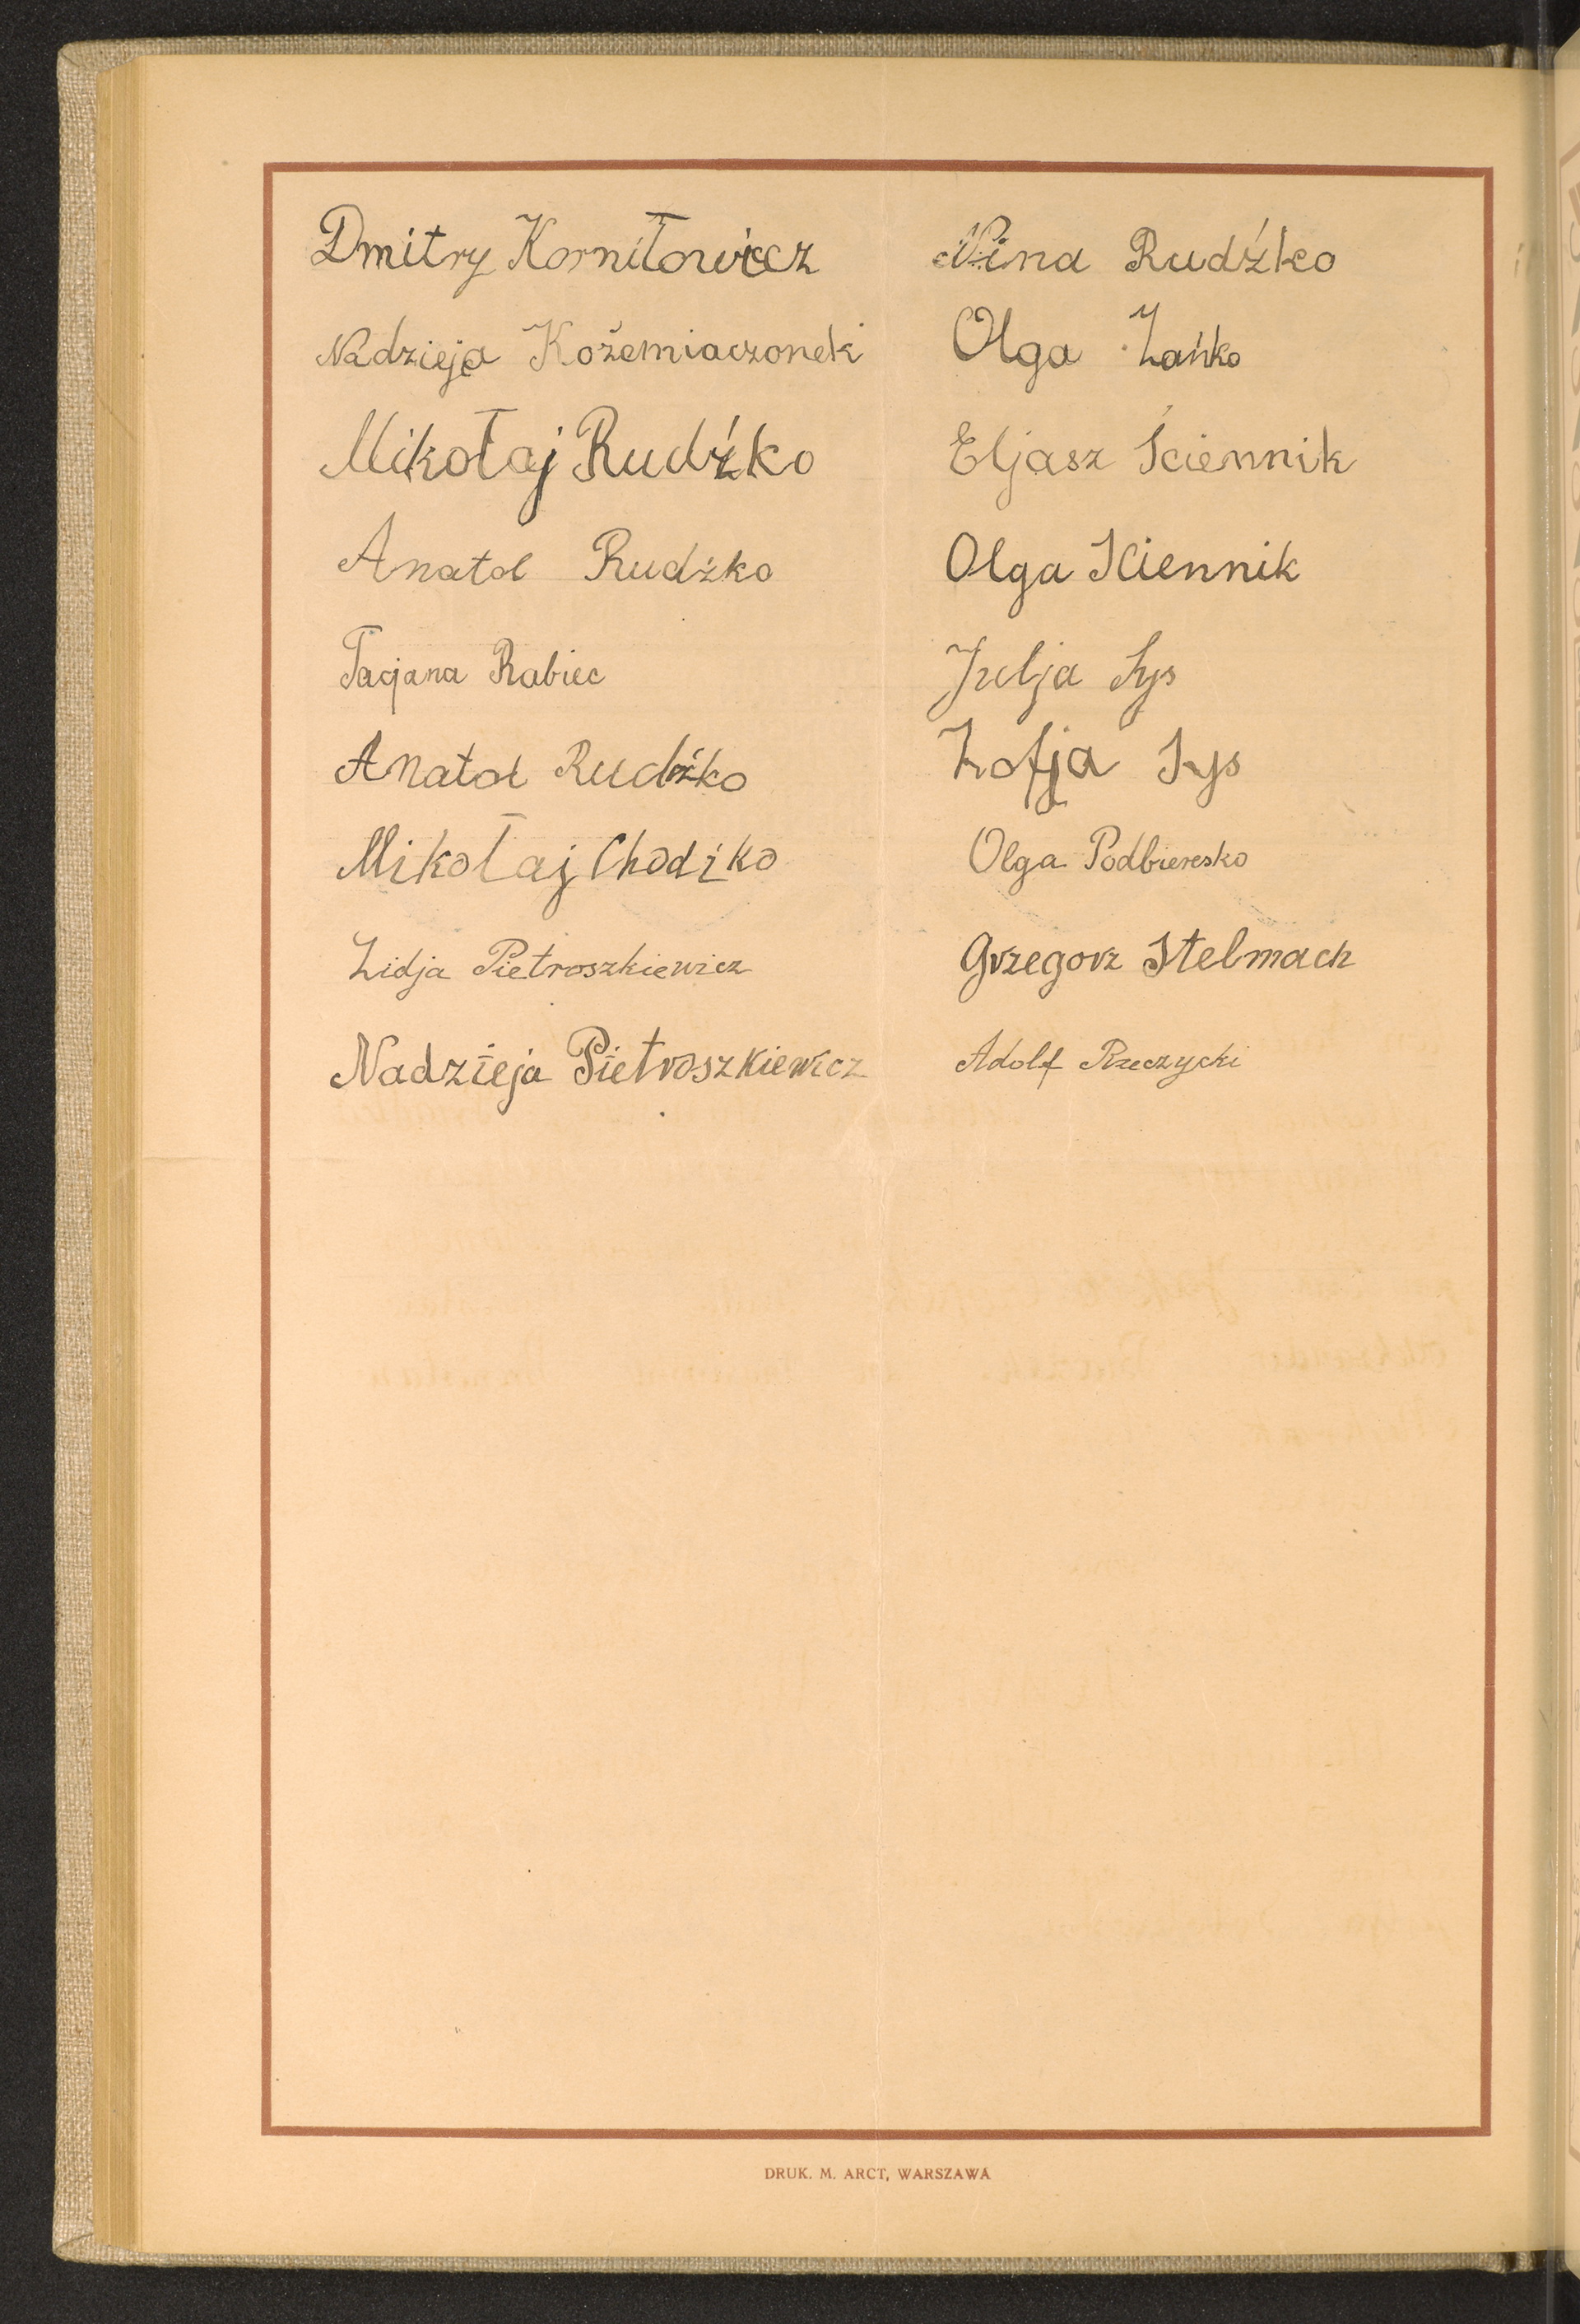 Dmitry Korniłowicz
Nadzieja Kożemiaczonek
Mikołaj Rudźko
Anatol Rudźko
Tacjana Rabiec
Anatol Rudźko
Mikołaj Chodźko
Lidja Pietroszkiewicz
Nadzieja Pietroszkiewicz
Nina Rudźko
Olga Łańko
Eljasz Ściennik
Olga Ściennik
Julja Łys
Zofja Łys
Olga Podbieresko
Grzegorz Stelmach
Adolf Rzeczycki
DRUK. M. ARCT, WARSZAWA